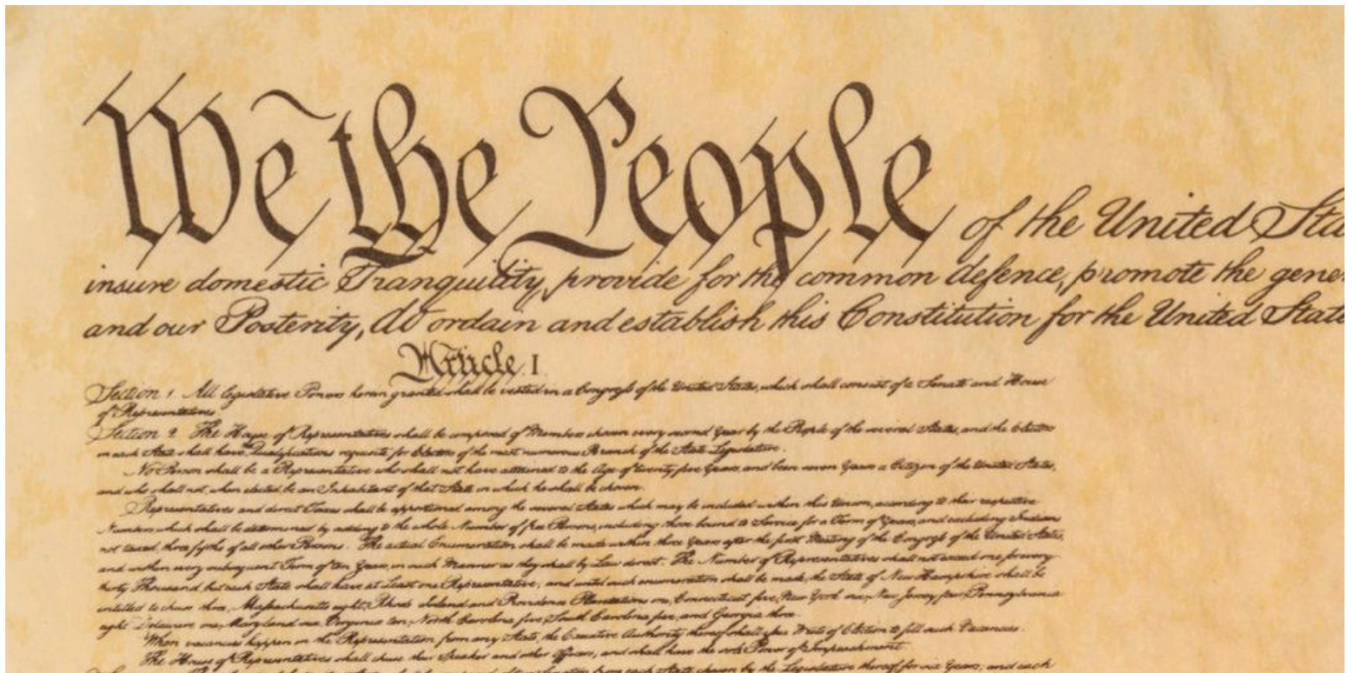 We the People of the United Sta
insure domestic Tranquility, provide for the common defence, promote the gene
and our Posterity, do ordain and establish this Constitution for the United State
Article. I
Section 1. All legislative Powers herein granted shall be vested in a Congress of the United States, which shall consist of a Senate and House
of Representatives
Section 2. The House of Representatives shall be composed of Members chosen every second Year by the People of the several States, and the Electors
in each State shall have Qualifications requisite for Electors of the most numerous Branch of the State Legislature.
No Person shall be a Representative who shall not have attained to the Age of twenty five Years, and been seven Years a Citizen of the United States,
and who shall not, when elected, be an Inhabitant of that State in which he shall be chosen.
Representatives and direct Taxes shall be apportioned among the several States which may be included within this Union, according to their respective
Numbers, which shall be determined by adding to the whole Number of free Persons, including those bound to Service for a Term of Years, and excluding Indians
not taxed, three fifths of all other Persons. The actual Enumeration shall be made within three Years after the first Meeting of the Congress of the United States,
and within every subsequent Term of ten Years, in such Manner as they shall by Law direct. The Number of Representatives shall not exceed one for every
thirty Thousand, but each State shall have at Least one Representative; and until such enumeration shall be made, the State of New Hampshire shall be
entitled to chuse three, Massachusetts eight, Rhode Island and Providence Plantations one, Connecticut five, New York six, New Jersey four, Pennsylvania
eight, Delaware one, Maryland six, Virginia ten, North Carolina five, South Carolina five, and Georgia three.
When vacancies happen in the Representation from any State, the Executive Authority thereof shall issue Writs of Election to fill such Vacancies.
The House of Representatives shall chuse their Speaker and other Officers; and shall have the sole Power of Impeachment.
from each State chosen by the Legislature thereof, for six Years; and each